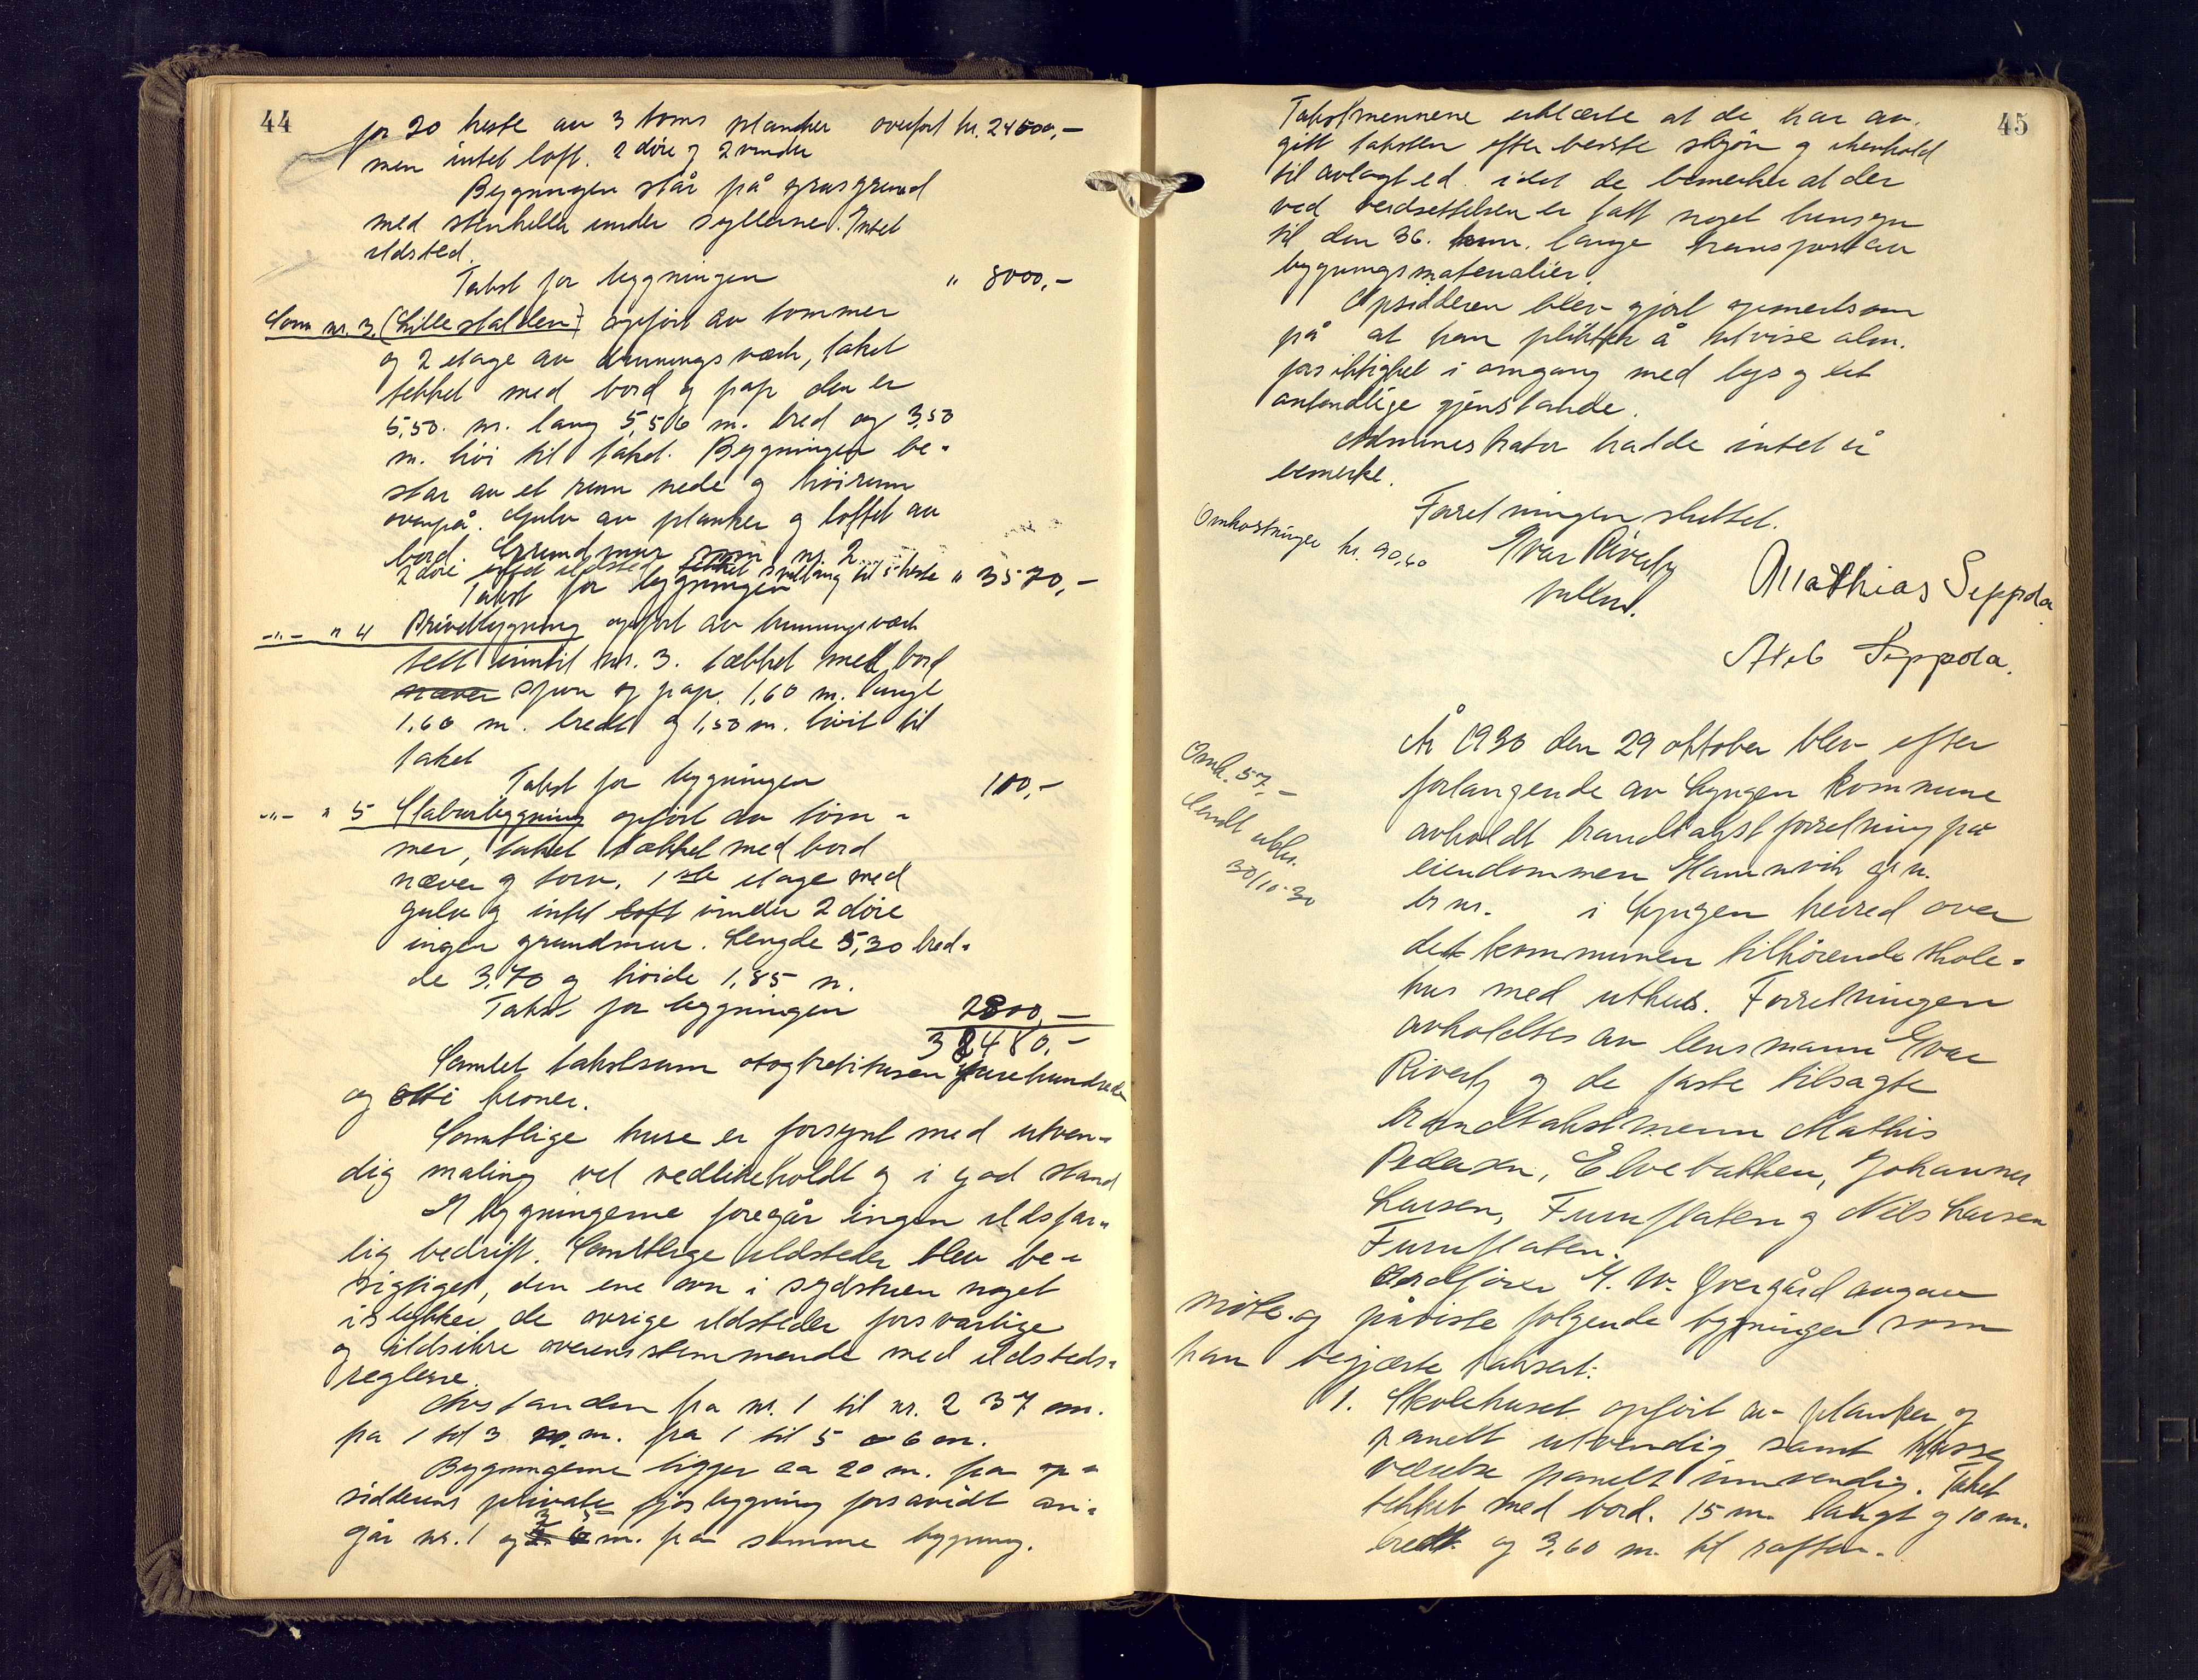 44
for 20 heste av 3 toms planker overført kr. 24000,-
men intet loft. 2 döre og 2 vinduer
Bygningen står på grusgrund
med stenheller under syllerne. Intet
ildsted.
Takst for bygningen " 8000,-
Som nr. 3. (Lillestalden) opført av tömmer
og 2 etage av binningsværk, taket
tekket med bord og pap den er
5,50 m. lang 5,50 m. bred og 3,50
m. höi til taket. Bygningen be-
står av et rum nede og höirum
ovenpå. Gulv av planker og loftet av
bord. Grundmur som nr. 2
2 döre intet ildsted spilltaug til heste " 3570,-
Takst for bygningen
-"- " 4 Privetbygning opført av binningsværk
tett inntil nr. 3. tækket med bord
næver spon og pap. 1,60 m. langt
1,60 m. bredt og 1,50 m. höit til
taket
Takst for bygningen 110,-
-"- " 5 Stabursbygning opført av töm-
mer, taket tækket med bord
næver og torv. 1ste etage med
gulv og intet loft vinduer 2 döre
ingen grundmur. Lengde 5,30 bred-
de 3,70 og höide 1,85 m.
Takst for bygningen 2800,-
38480,-
Samlet takstsum otogtretitusen firehundrede
og otti kroner.
Samtlige huse er forsynt med utven-
dig maling vel vedlikeholdt og i god stand
I bygningerne foregår ingen ildsfar-
lig bedrift. Samtlige ildsteder blev be-
sigtiget, den ene ovn i sydstuen noget
istykker de øvrige ildsteder forsvarlige
og ildsikre overensstemmende med ildsteds-
reglene.
Avstanden fra nr. 1 til nr. 2 37 m.
fra 1 til 3 m. fra 1 til 5 6 m.
Bygningerne ligger ca 20 m. fra op-
sidderens private fjøsbygning forsåvidt an-
går nr. 1 og m. fra samme bygning.
45
Takstmennene erklærte at de har av-
gitt taksten efter beste skjön og i henhold
til avlagt ed. idet de bemerker at der
ved verdsettelsen er tatt noget hensyn
til den 36. km. lange transport av
bygningsmaterialier.
Opsidderen blev gjort opmerksom
på at han plikter å utvise alm.
forsiktighet i omgang med lys og let
antendlige gjenstande.
Administrator hadde intet å
bemerke.
Forretningen sluttet.
Omkostninger kr. 90,60
Ivar Riverty
fullm.
Mathias Seppola
Seppola.
År 1930 den 29 oktober blev efter
Omk. 57,-
Sendt utskr.
30/10-30
forlangende av Lyngen kommune
avholdt brandtakstforretning på
eiendommen Hamnvik g.nr.
br nr. i Lyngen herred over
det kommunen tilhörende skole-
hus med uthus. Forretningen
avholdtes av lensmann Ivar
Riverty og de faste tilsagte
brandtakstmenn Mathis
Pedersen, Elvebakken, Johannes
Larsen, Furuflaten og Nils Larsen
Furuflaten.
Ordförer angav
möte og påviste følgende bygninger som
han begjærte taksert:
1. Skolehuset opført av planker og
panelt utvendig samt klasse
værelse panelt innvendig. Taket
tekket med bord. 15 m. langt og 10 m.
bredt og 3,60 m. til raften.